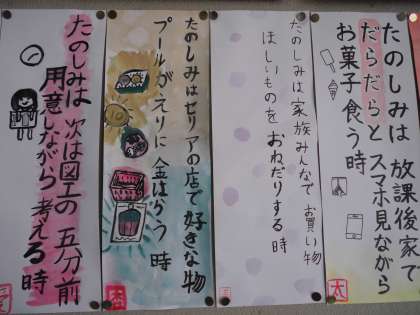 たのしみは 放課後家で
だらだらと スマホ見ながら
お菓子食う時
太
たのしみは家族みんなで お買い物
ほしいものを おねだりする 時
たのしみはセリアの店で好きな物
プールがえりに 金はらう 時
たのしみは 次は図工の 五分前
用意しながら 考える 時